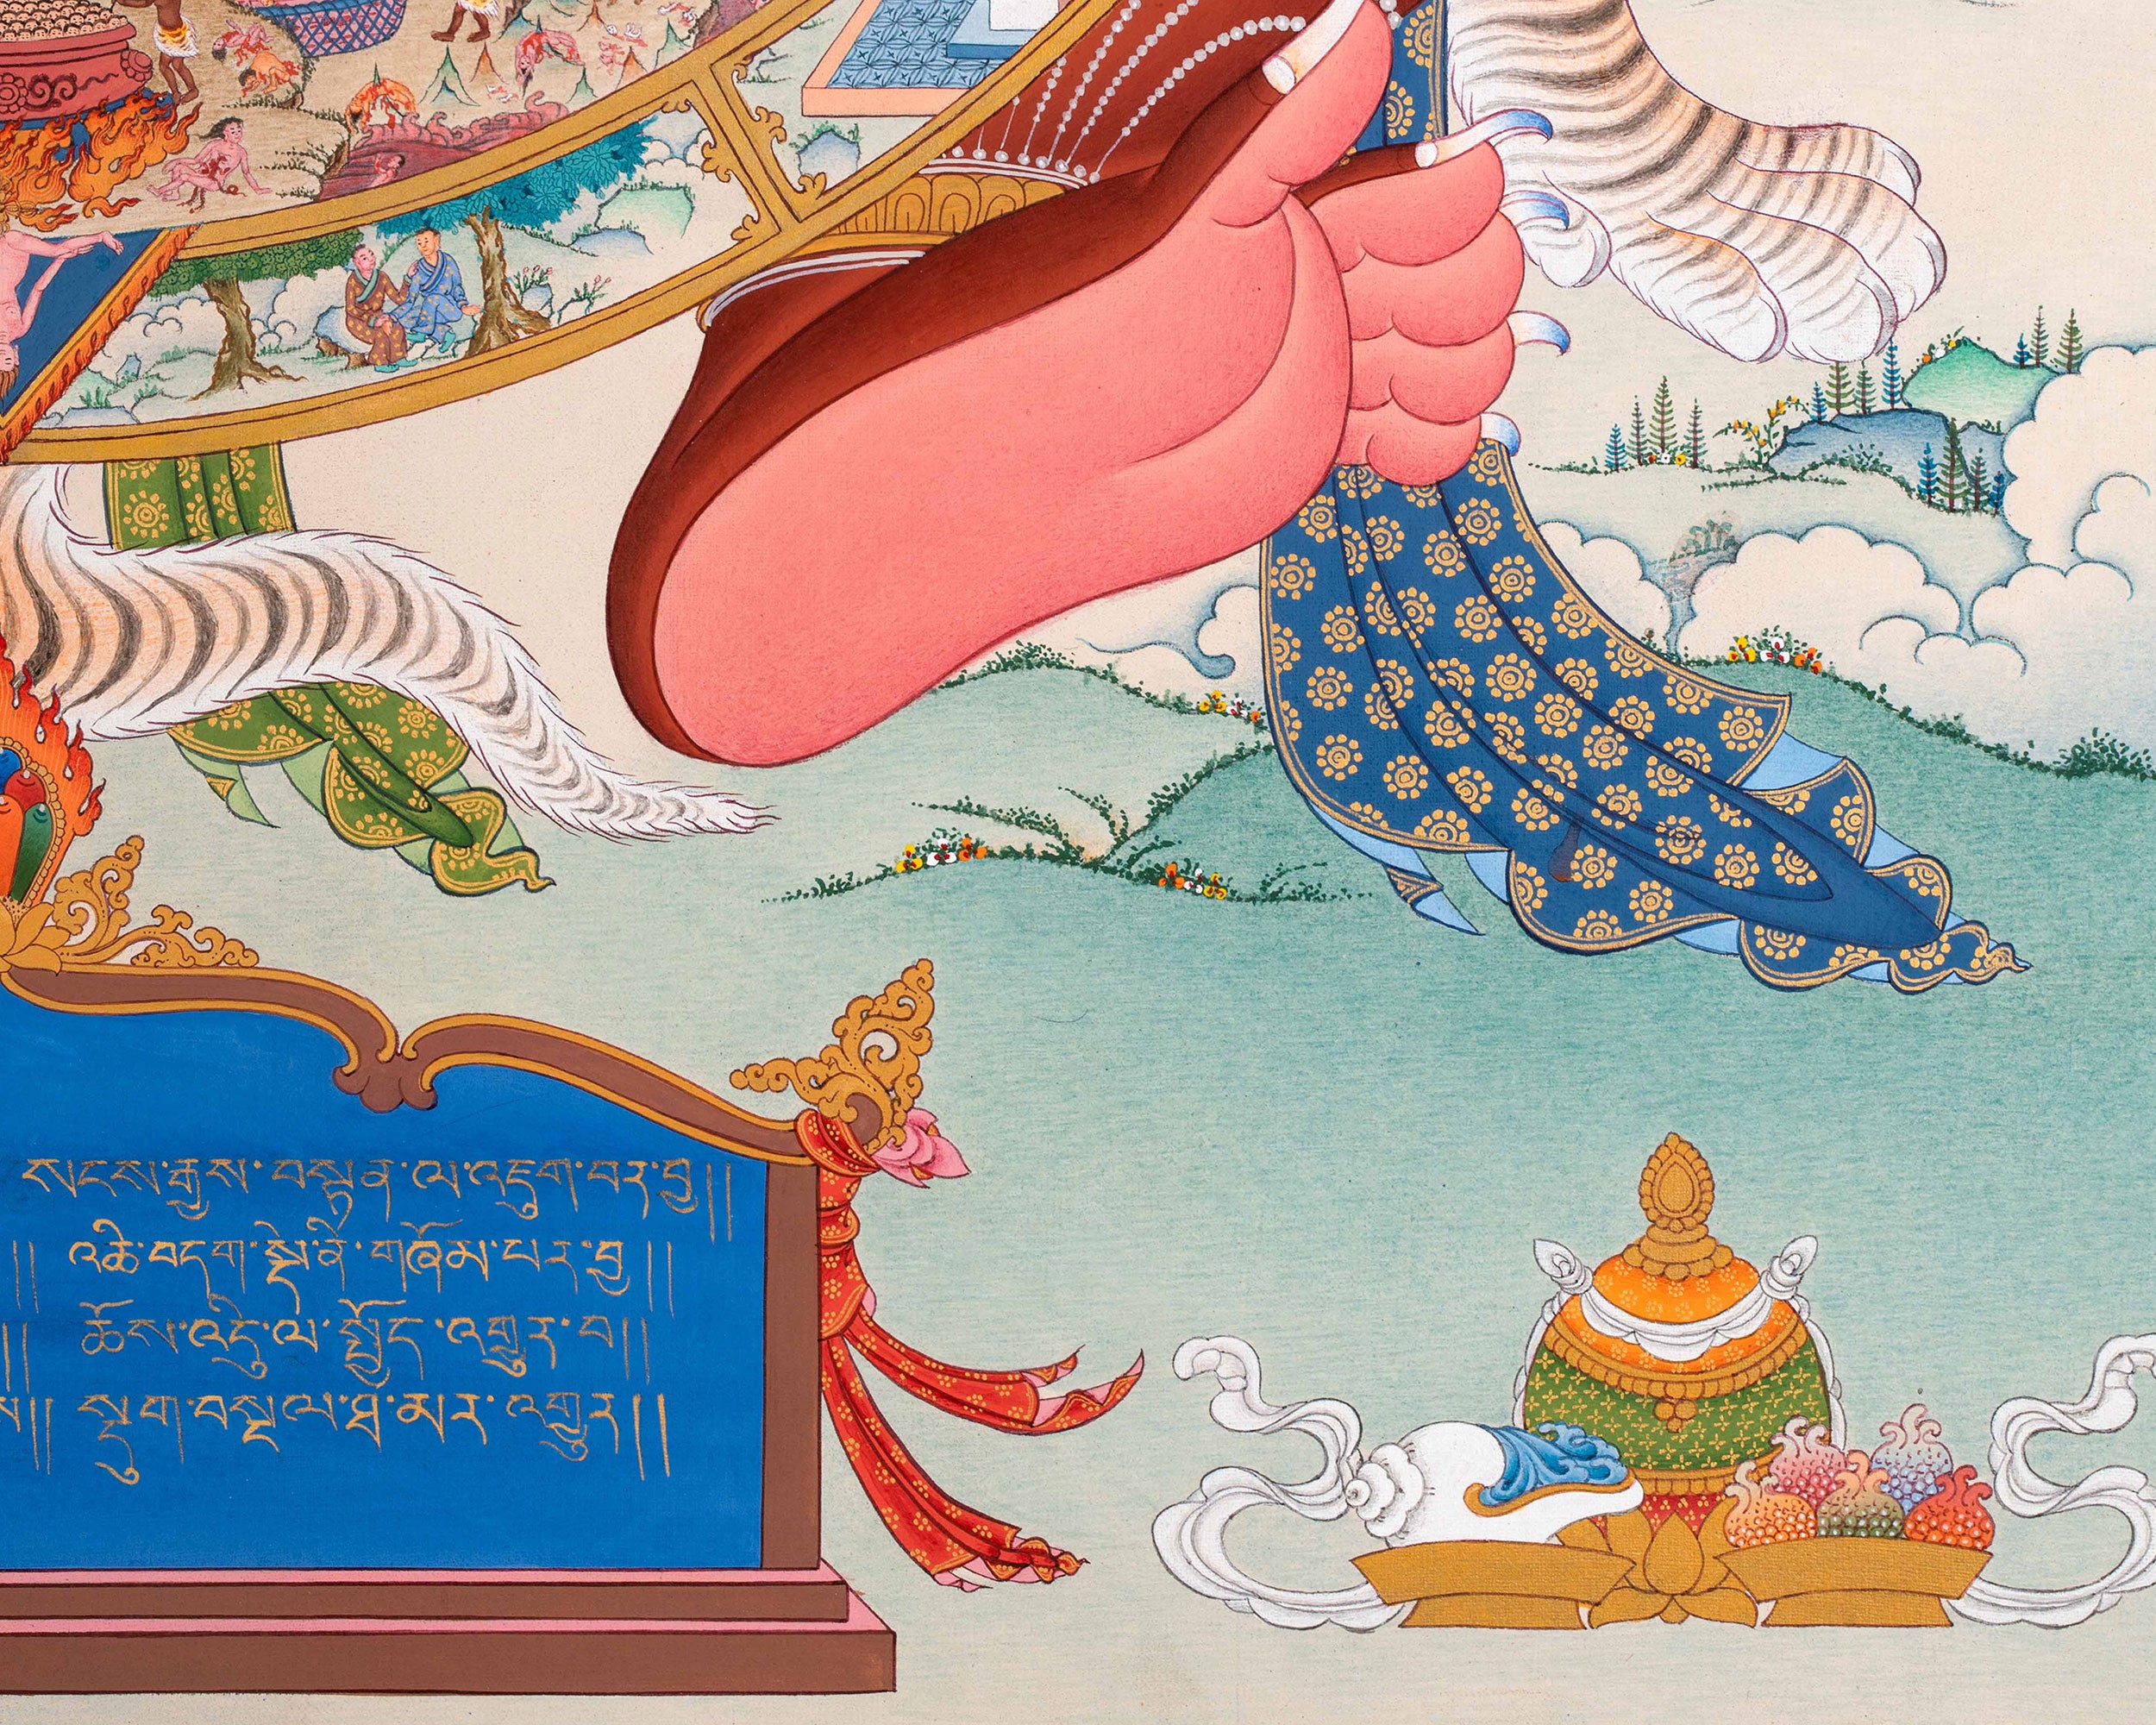 སངས་རྒྱས་བསྟན་ལ་འཇུག་བར་བྱ།།
།། འཆི་བདག་སྡེ་ནི་གཞོམ་པར་བྱ།།
།། ཆོས་འདིུ་ལ་སྤྱོད་འགྱུར་བ།།
ས།། སྡུག་བསྔལ་ཐ་མར་འགྱུར།།